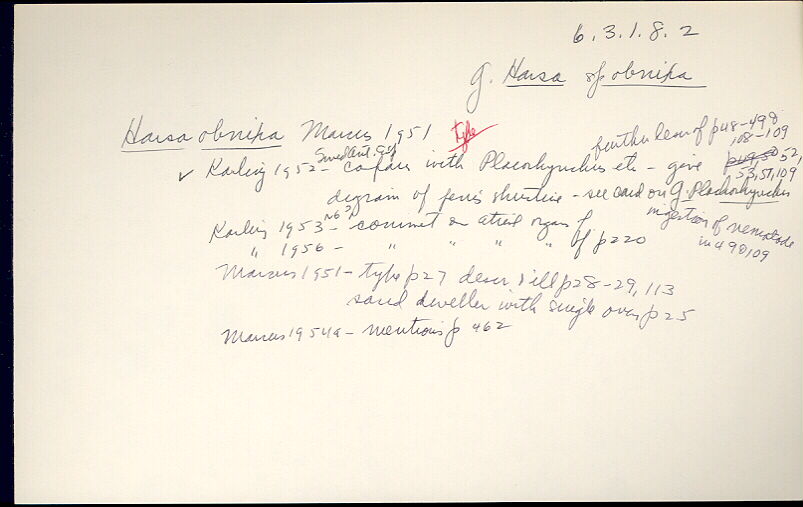 6.3.1.8.2
g. Harsa sp obnixa
Harsa obnixa Marcus 1951 type
further desc of p 48-49 &
108-109
✓ Karling 1952 - Swed Ant. Exp compares with Placorhynchus etc - gives p 49, 50 52,
53, 57, 109
diagram of penis structure - see card on g. Placorhynchus
ingestion of nematode
in 49 & 109
Karling 1953 - No 3 comment on atrial organ of
" 1956 - " " " " of p 220
Marcus 1951 - type p 27 descr & ill p 28-29, 113
sand dweller with single ovary p 25
Marcus 1954a - mentions p 462